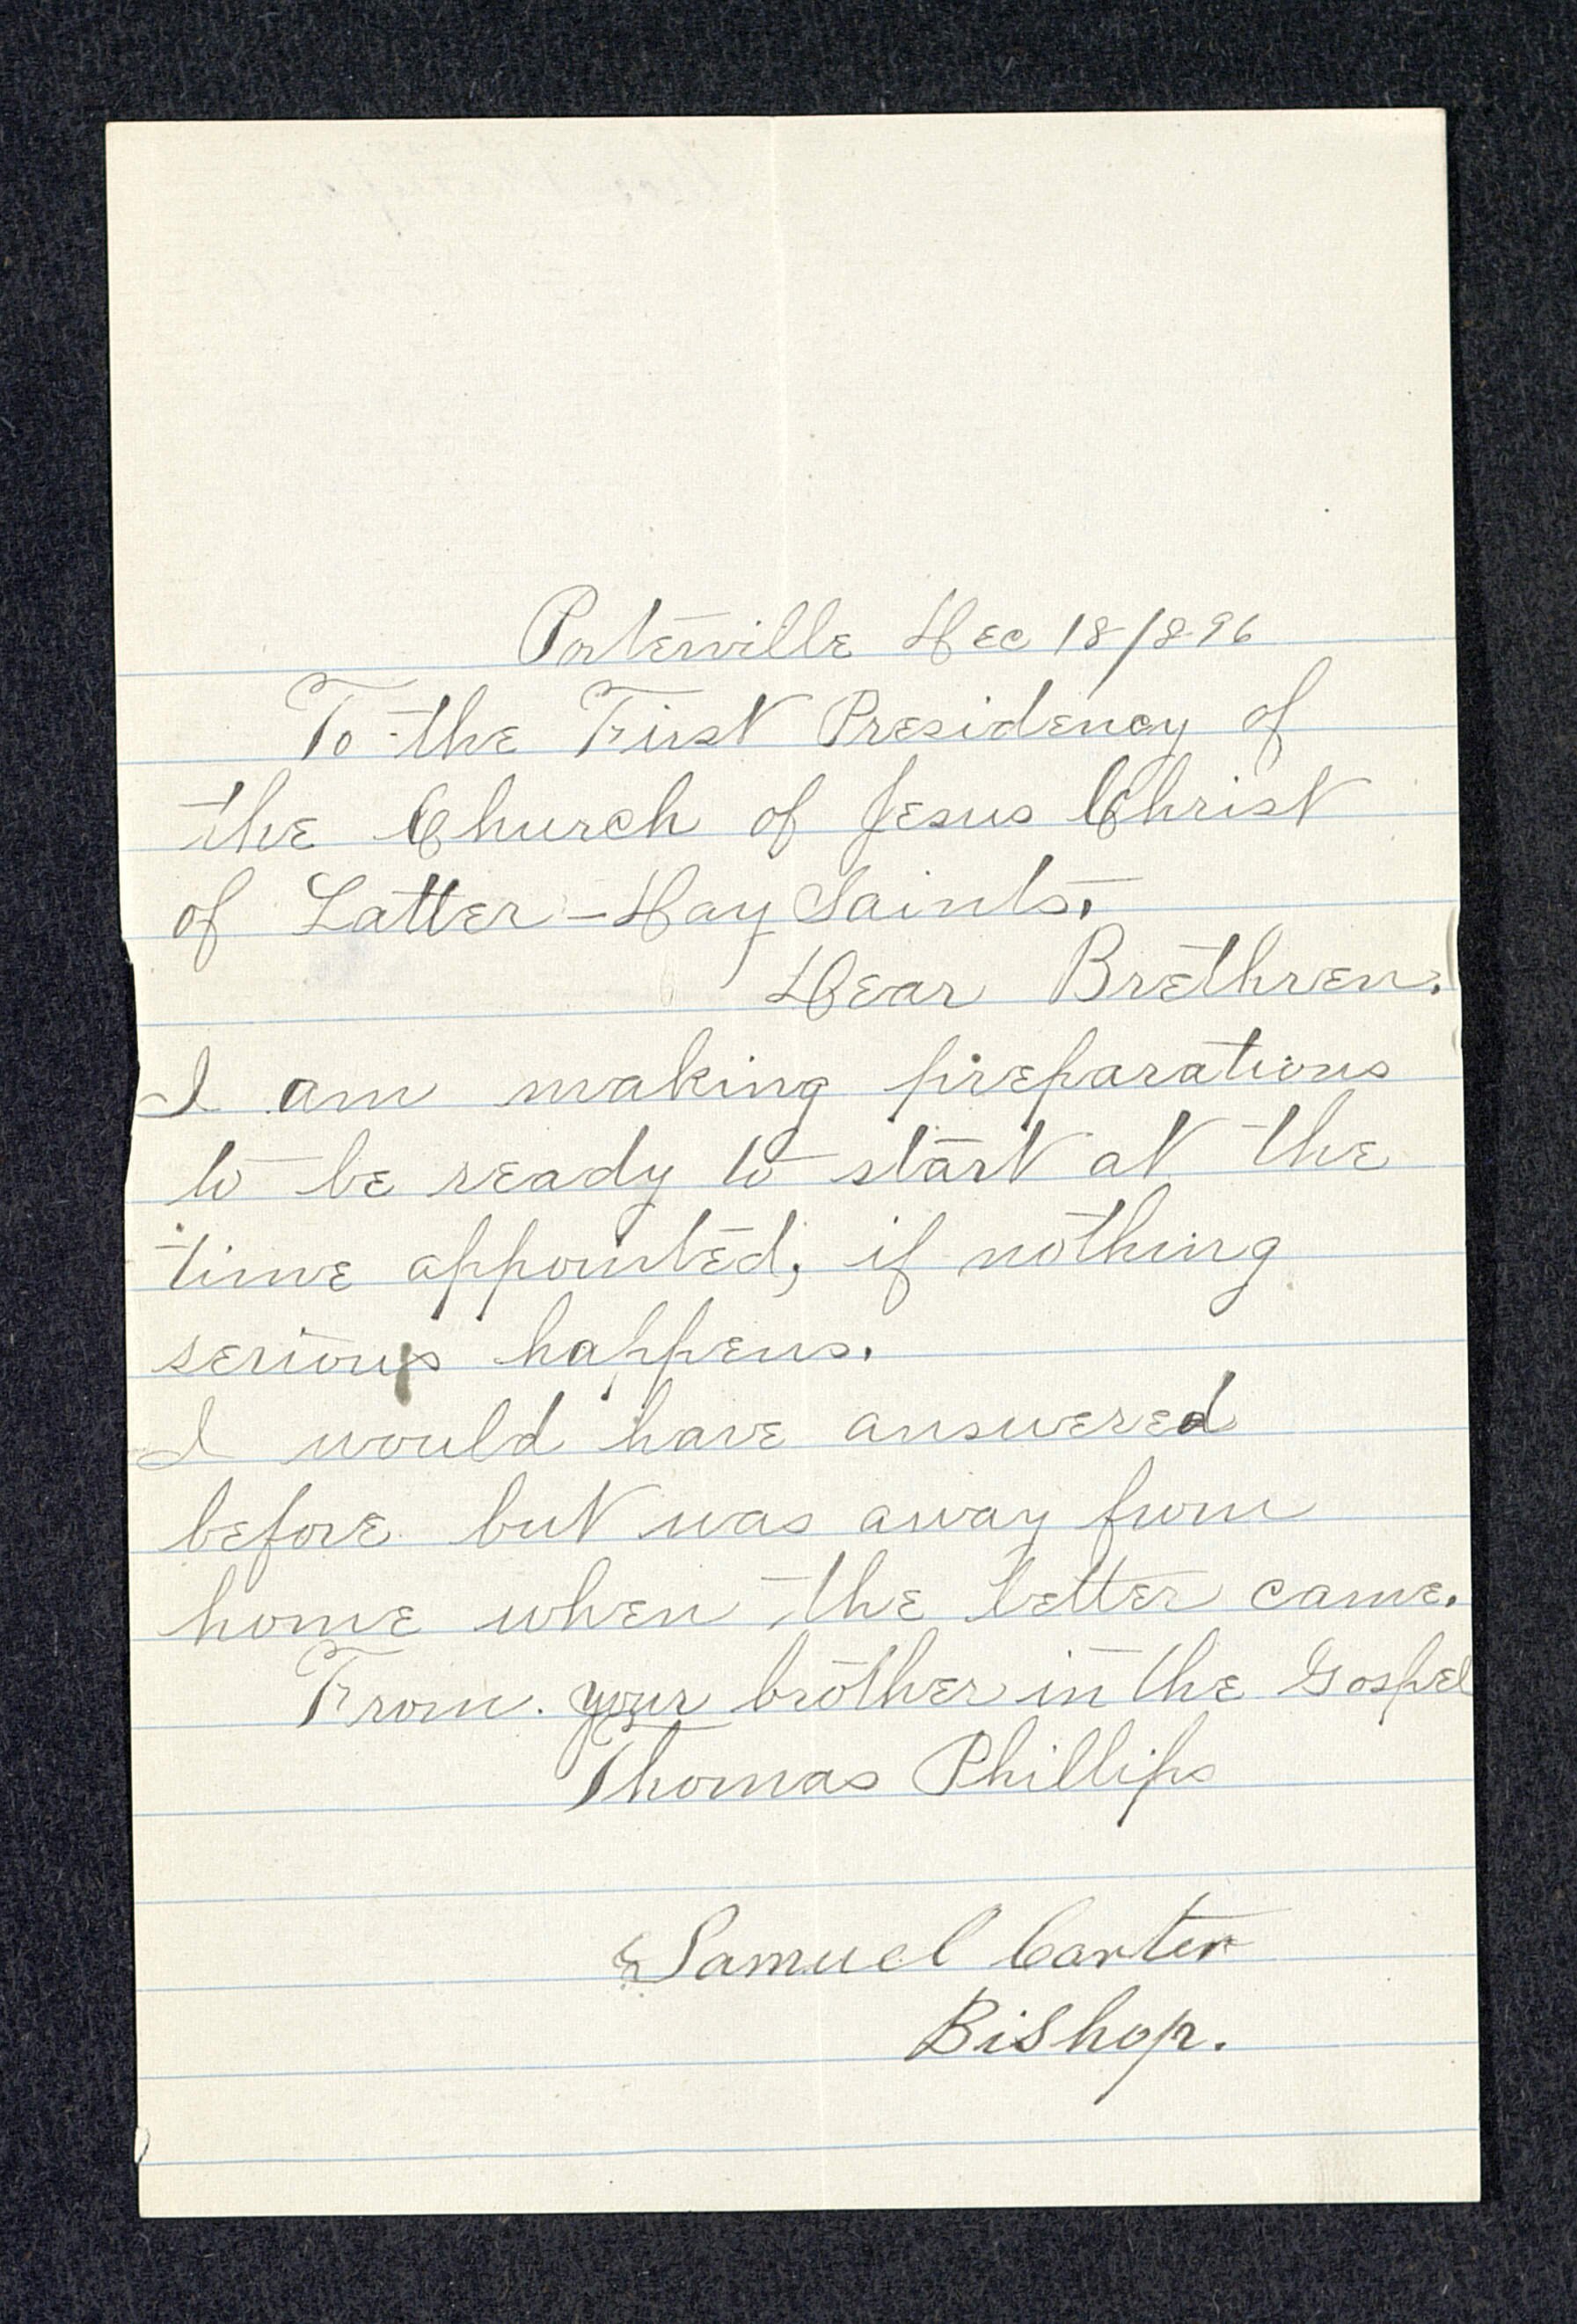 Porterville Dec 18/896
To the First Presidency of
the Church of Jesus Christ
of Latter-Day Saints.
Dear Brethren.
I am making preparations
to be ready to start at the
time appointed, if nothing
serious happens.
I would have answered
before but was away from
home when the letter came.
From. your brother in the Gospel
Thomas Phillips
Samuel Carter
Bishop.